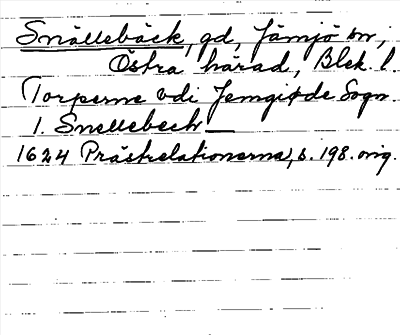 Snällebäck, gd, Jämjö sn,
Östra härad, Blek. l.
Torperne vdi Jemgiøde Sogn.
1. Snellebech —
1624 Prästrelationerna, s. 198. orig.